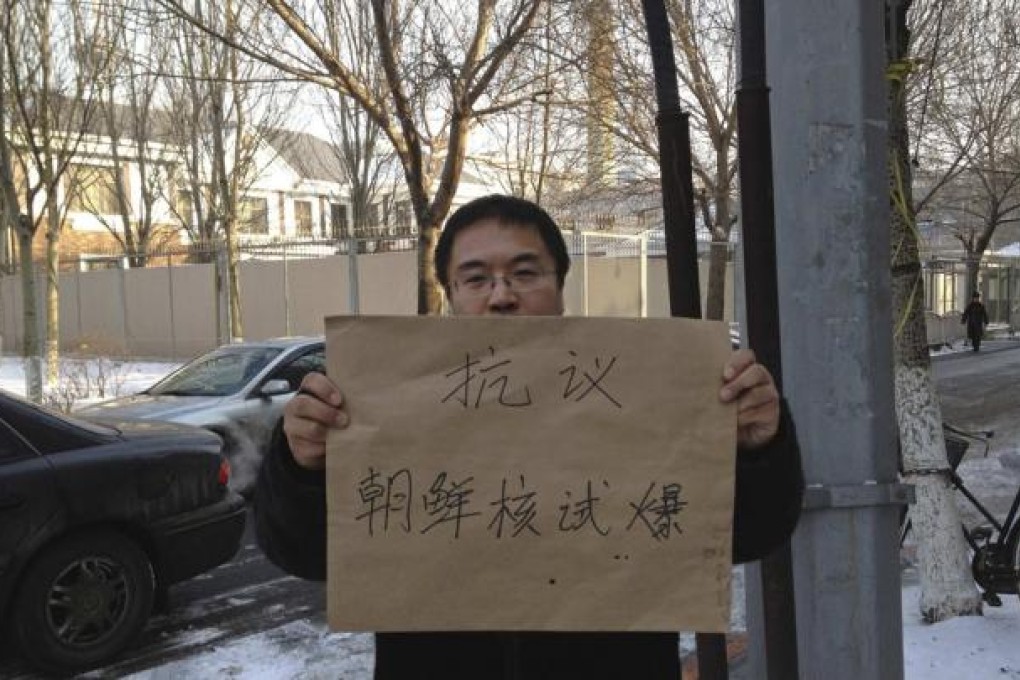 抗议
朝鲜核试爆